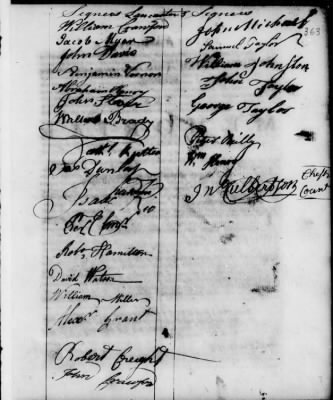 Signers Lancaster
William Crawford
Jacob Myer
John Davis
Benjamin Vernon
Abraham Henry
John
William Brady
Jas Dunlap
Isaac
Robt Hamilton
David Watson
William Miller
Alexr Grant
Robert Creight
John Crawford
Signers
John Michael
363
Samuel Taylor
William Johnston
John Taylor
George Taylor
Peter Reilly
Wm
Jn Culbertson
Chest
Count